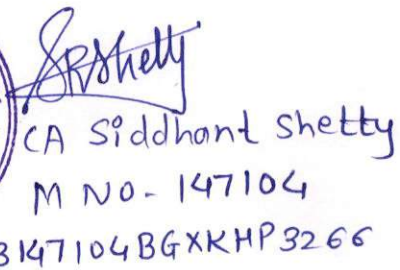 SRShetty
CA Siddhant Shetty
M NO- 147104
3147104BGXKHP3266